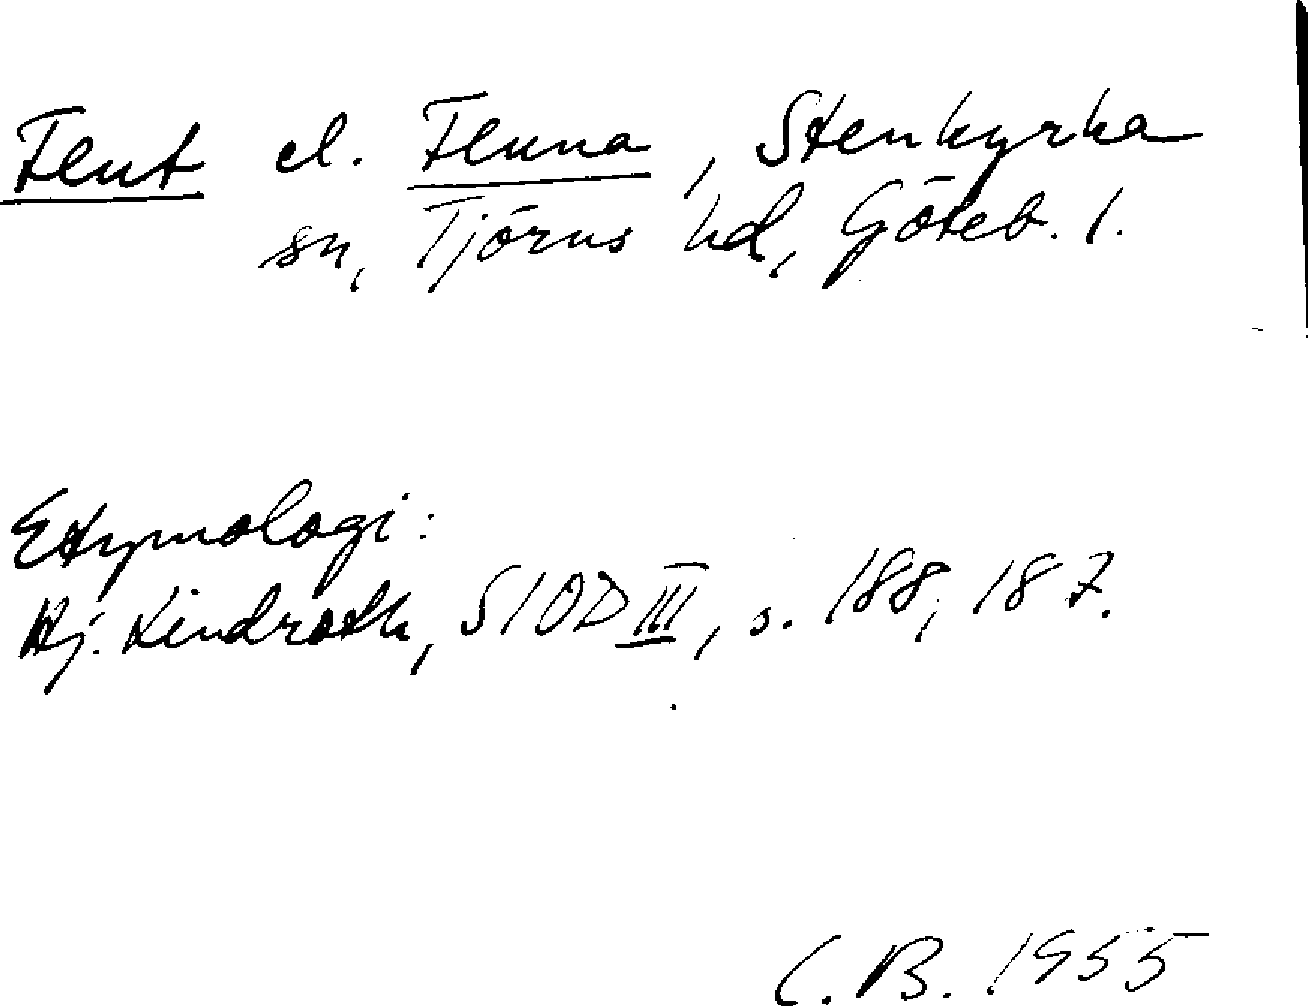 Flut el. Flunna, Stenkyrka
sn, Tjörns hd, Göteb. l.
Etymologi:
Hj. Lindroth, SIOD III, s. 188, 187.
C.B. 1955